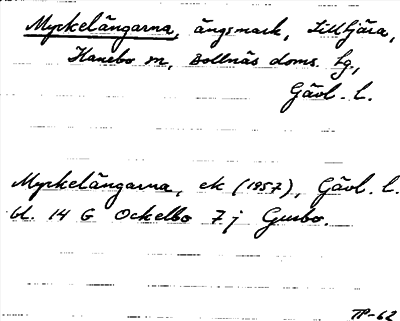 Myrkelängarna, ängsmark, Lilltjära,
Hanebo sn, Bollnäs doms. tg,
Gävl. l.
Myrkelängarna, ek (1957), Gävl. l.
bl. 14 G Ockelbo 7 j Gusbo.
TP-62